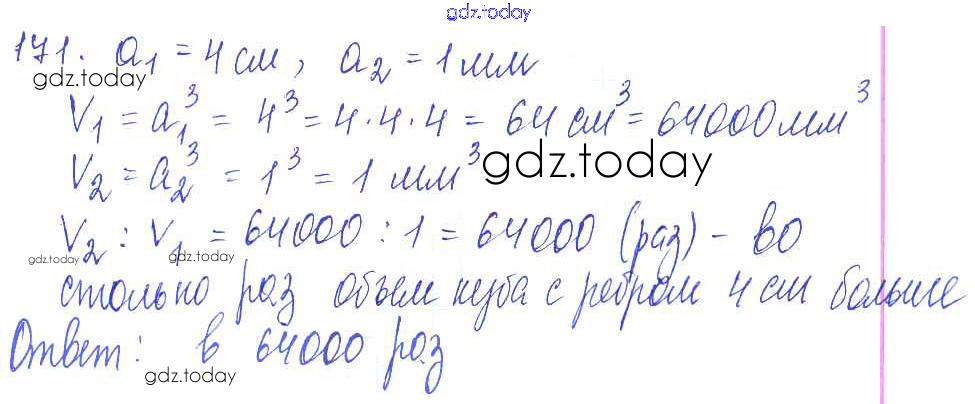 gdz.today
171. a₁ = 4 см, a₂ = 1 мм
gdz.today
V₁ = a₁³ = 4³ = 4·4·4 = 64 см³ = 64000 мм³
V₂ = a₂³ = 1³ = 1 мм³ gdz.today
V₂ : V₁ = 64000 : 1 = 64000 (раз) – во
gdz.today gdz.today
столько раз объем куба с ребром 4 см больше
Ответ: в 64000 раз
gdz.today gdz.today